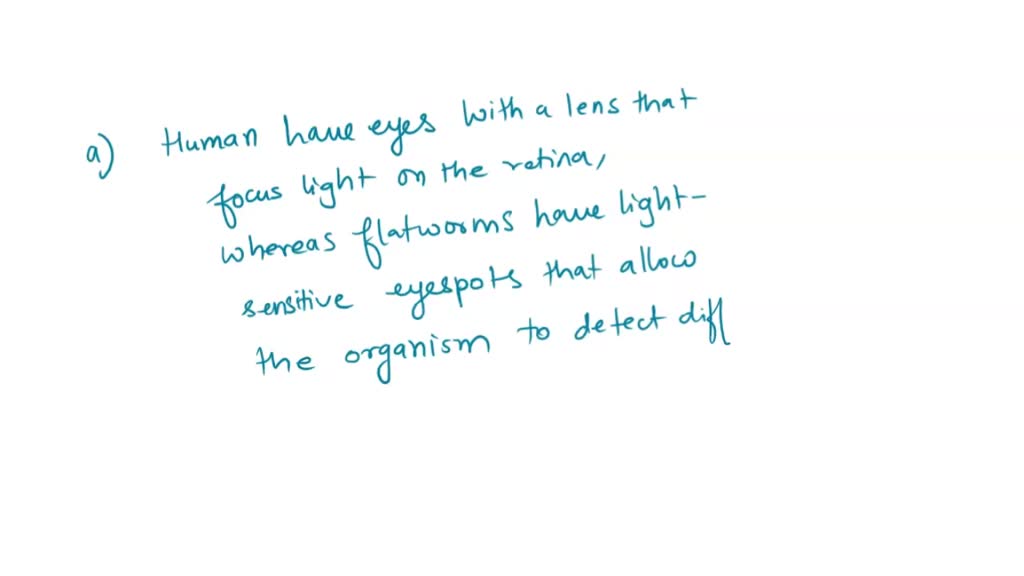 a) Human have eyes with a lens that
focus light on the retina,
whereas flatworms have light-
sensitive eyespots that allow
the organism to detect diff